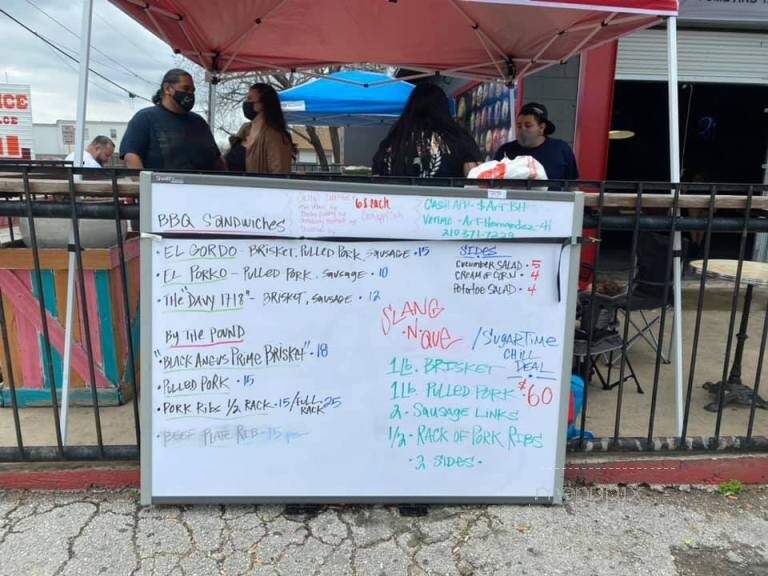 ICE
BBQ Sandwiches
6$ each
Cash App - $ Art BH
Venmo - Art-Hernandez-41
210.371-7229
• EL GORDO - Brisket, Pulled Pork, Sausage • 15
• EL Porko - Pulled Pork, Sausage • 10
• The "Davy 1718" - Brisket, Sausage • 12
SIDES
Cucumber Salad • 5
Cream of Corn • 4
Potatoe Salad • 4
By The Pound
"Black Angus Prime Brisket" • 18
• Pulled Pork • 15
• Pork Ribs 1/2 Rack • 15 / Full Rack • 25
• Beef Plate Rib • 15
SLANG
·N· QUE / SugarTime
Chill
Deal
$60
1 lb. Brisket
1 lb. Pulled Pork
2 - Sausage Links
1/2 - Rack of Pork Ribs
• 2 Sides •